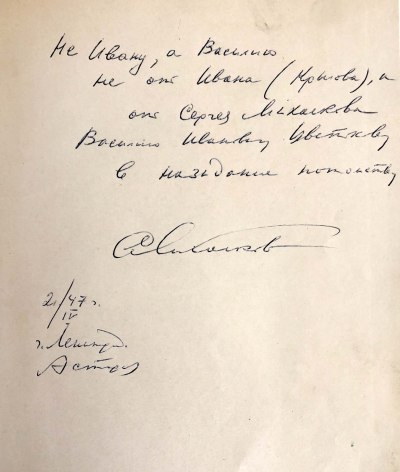 Не Ивану, а Василию
не от Ивана (Крылова), а
от Сергея Михалкова
Василию Ивановичу Цветкову
в назидание потомству
СМихалков
2/IV 47 г.
г. Ленинград.
Астор